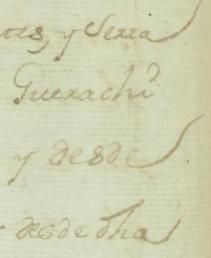 y Seria
Guerachi
y desde
desde dha